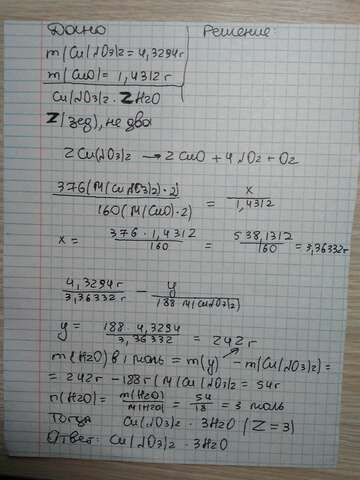 Дано
Решение:
m(Cu(NO3)2 = 4,3294г
m(CuO) = 1,4312 г
Cu(NO3)2 · ZH2O
Z(зед), не два
2Cu(NO3)2 → 2CuO + 4NO2 + O2
376(M(Cu(NO3)2)·2) / 160(M(CuO)·2) = x / 1,4312
x = 376 · 1,4312 / 160 = 538,1312 / 160 = 3,36332г
4,3294г / 3,36332г — y / 188 M(Cu(NO3)2)
y = 188 · 4,3294 / 3,36332 = 242г
m(H2O) в 1 моль = m(y) - m(Cu(NO3)2) =
= 242г - 188г (M(Cu(NO3)2 = 54г
n(H2O) = m(H2O) / M(H2O) = 54 / 18 = 3 моль
Тогда Cu(NO3)2 · 3H2O (Z = 3)
Ответ: Cu(NO3)2 · 3H2O